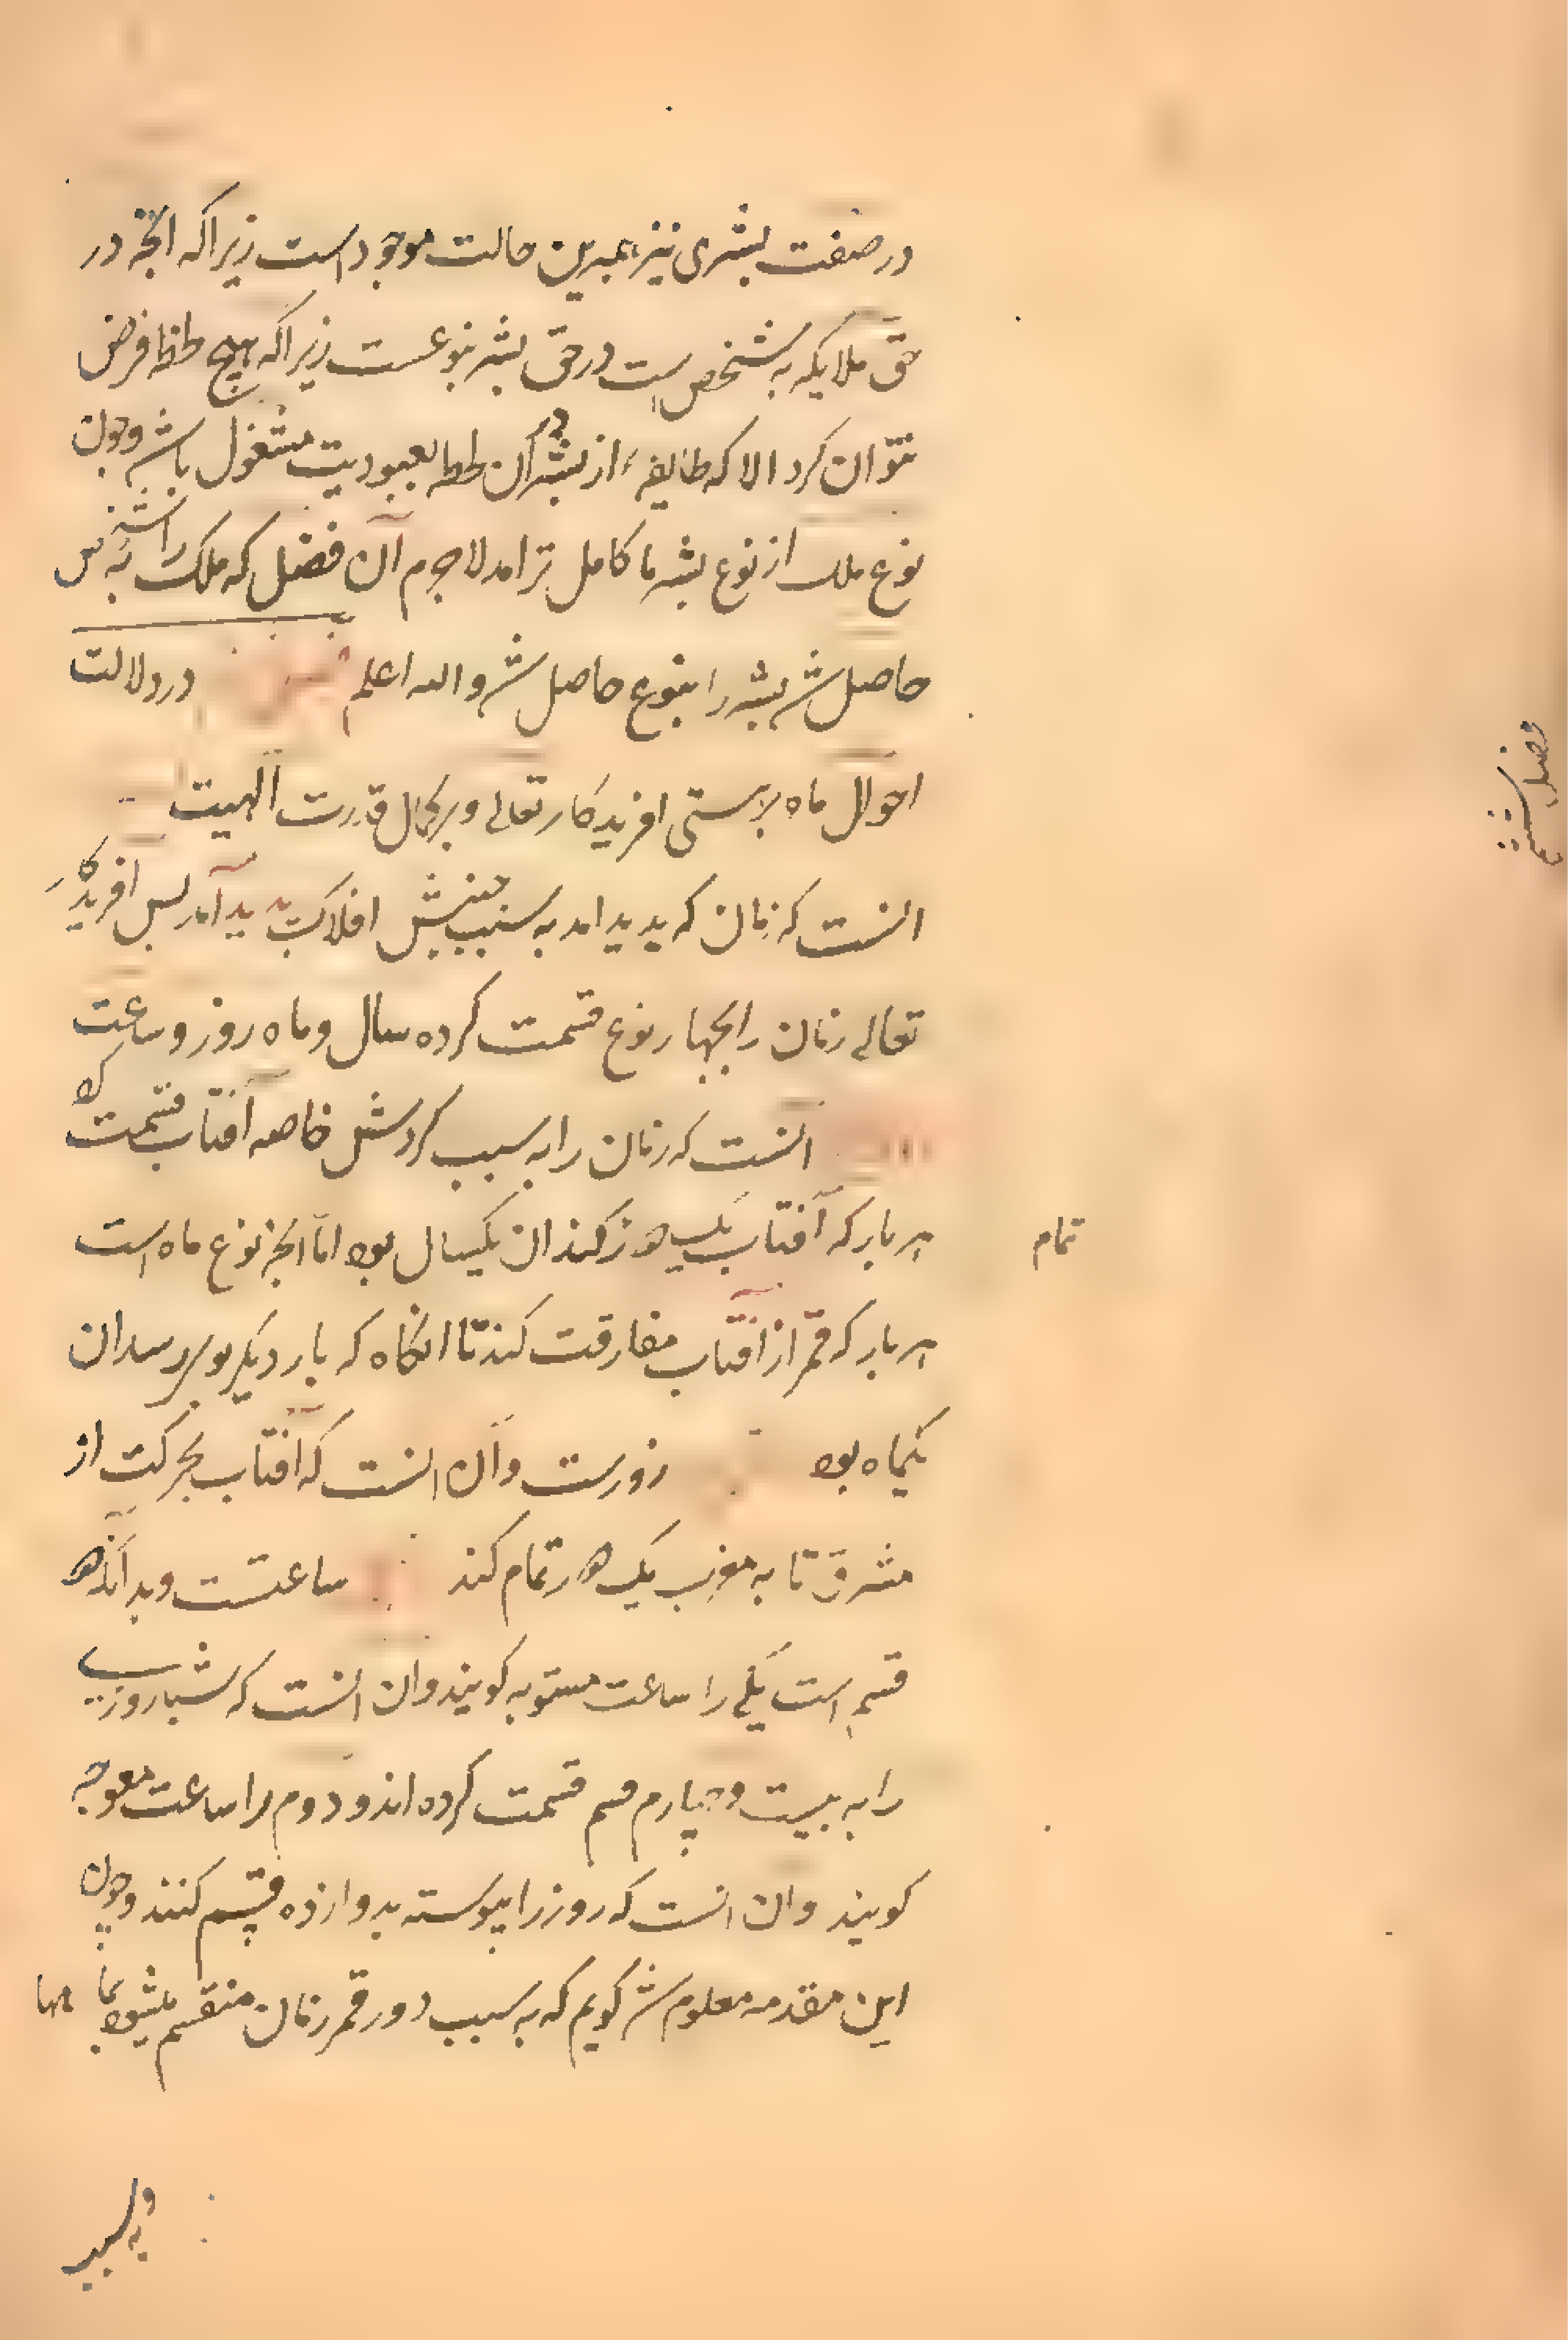 در صفت بشری نیز همبرین حالت موجود است زیرا که انچه در
حق ملایکه به شخص ست در حق بشر بنوعست زیرا که هیچ لحظه فرض
نتوان کرد الا که طایفهٔ از بشر در آن لحظه بعبودیت مشغول باشد و چون
نوع ملک از نوع بشر ما کامل تر امد لاجرم آن فضل که ملک را به شخص
حاصل شد بشر را بنوع حاصل شد والله اعلم در دلالت
احوال ماه بر هستی افریدکار تعالی و بر کمال قدرت الهیت
انست که زمان که پدید امد به سبب جنبش افلاک پدید آمد پس افریدکار
تعالی زمان را بچهار نوع قسمت کرده سال و ماه روز و ساعت
انست که زمان را به سبب کردش خاصه آفتاب قسمت کرد
هر بار که آفتاب یک دور کند ان یکسال بود اما انچه نوع ماه است
تمام
هر بار که قمر از آفتاب مفارقت کند تا انکاه که بار دیکر بوی رسد ان
یکماه بود روزست و آن انست که آفتاب بحرکت از
مشرق تا به مغرب یک دور تمام کند ساعتست و بدانکه دو
قسم است یکی را ساعت مستویه کویند وان انست که شباروزی
را به بیست و چهارم قسم قسمت کرده اند و دوم را ساعت معوجه
کویند وان انست که روز را پیوسته بدوازده قسم کنند و چون
این مقدمه معلوم شد کویم که به سبب دور قمر زمان منقسم میشود بماهها
و به سبب
فصل ششم